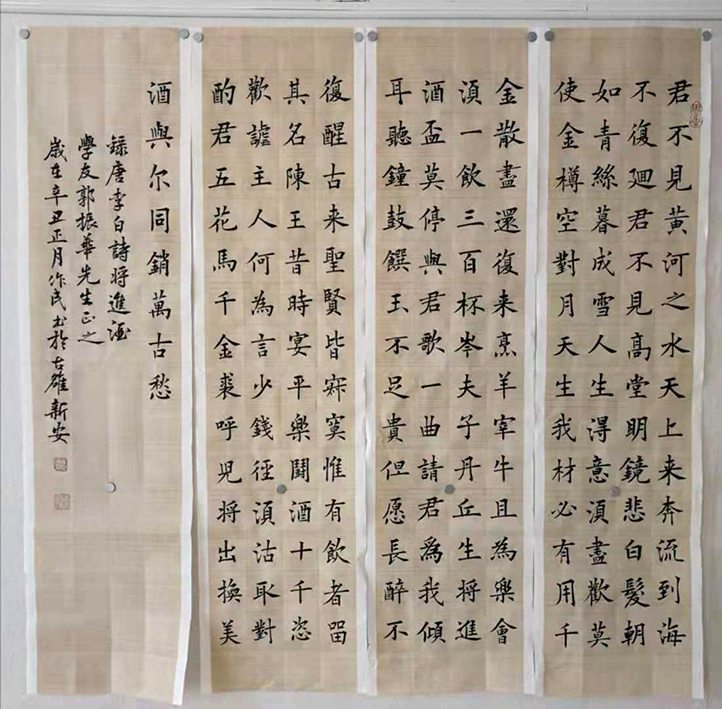 君不見黃河之水天上来奔流到海
不復廻君不見高堂明鏡悲白髮朝
如青絲暮成雪人生得意湏盡歡莫
使金樽空對月天生我材必有用千
金散盡還復来烹羊宰牛且為樂會
湏一飲三百杯岑夫子丹丘生將進
酒盃莫停與君歌一曲請君爲我傾
耳聽鐘鼓饌玉不足貴但愿長醉不
復醒古来聖賢皆寂寞惟有飲者留
其名陳王昔時宴平樂鬪酒十千恣
歡謔主人何為言少錢徑湏沽取對
酌君五花馬千金裘呼児将出換美
酒與尔同銷萬古愁
録唐李白詩将進酒
學友郭振華先生正之
歲在辛丑正月作民书於古雒新安